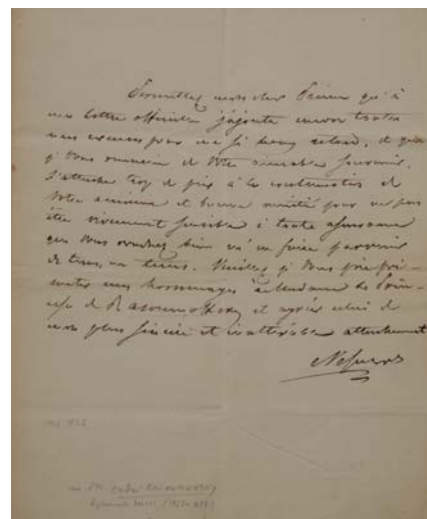 Permettez mon cher Prince qu'à
ma lettre officielle j'ajoute encore toutes
mes excuses pour un si long retard, et que
je vous remercie de votre aimable souvenir.
J'attache trop de prix à la continuation de
votre ancienne et bonne amitié pour ne pas
être vivement sensible à toute assurance
que vous voudrez bien m'en faire parvenir
de tems en tems. Veuillez je vous prie pré-
senter mes hommages à Madame la Prin-
cesse de Rasoumoffsky et agréer celui de
mon plus sincère et inaltérable attachement
1822
au Pce André